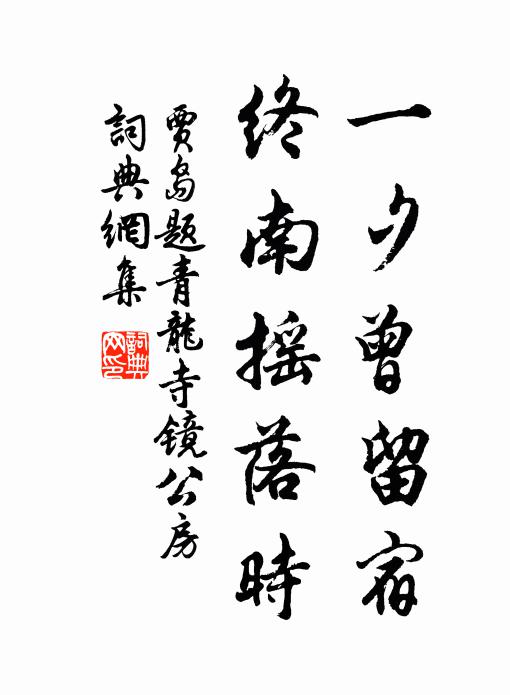 一夕曾留宿
終南摇落時
賈島题青龍寺鏡公房
詞典網集
詞典
网印